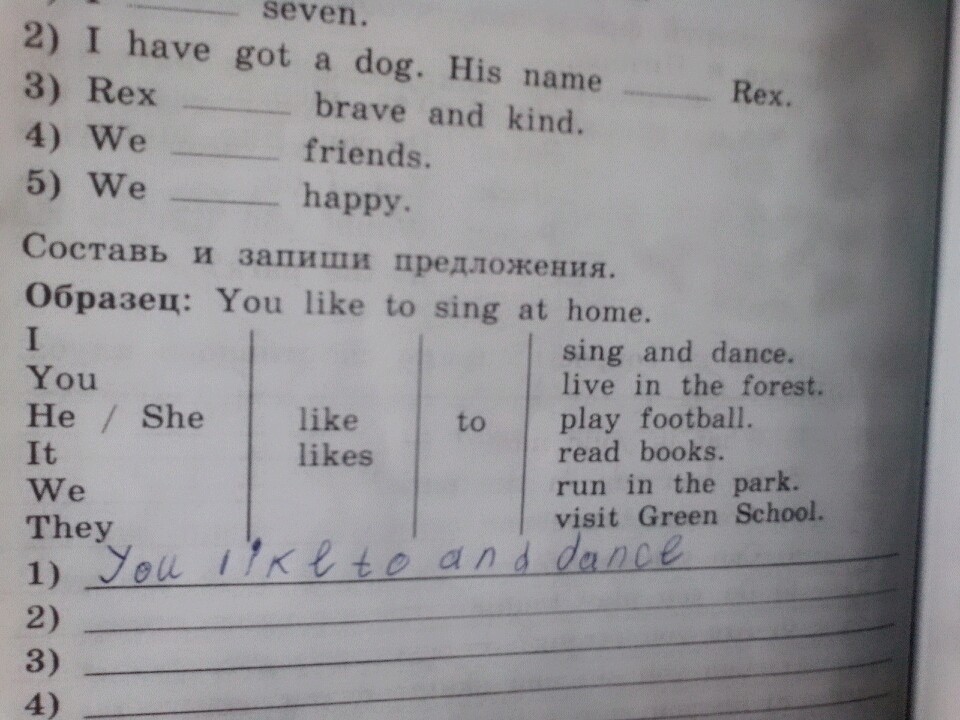 seven.
2) I have got a dog. His name ______ Rex.
3) Rex ______ brave and kind.
4) We ______ friends.
5) We ______ happy.
Составь и запиши предложения.
Образец: You like to sing at home.
I
You
He / She
It
We
They
like
likes
to
sing and dance.
live in the forest.
play football.
read books.
run in the park.
visit Green School.
1) You like to and dance
2)
3)
4)